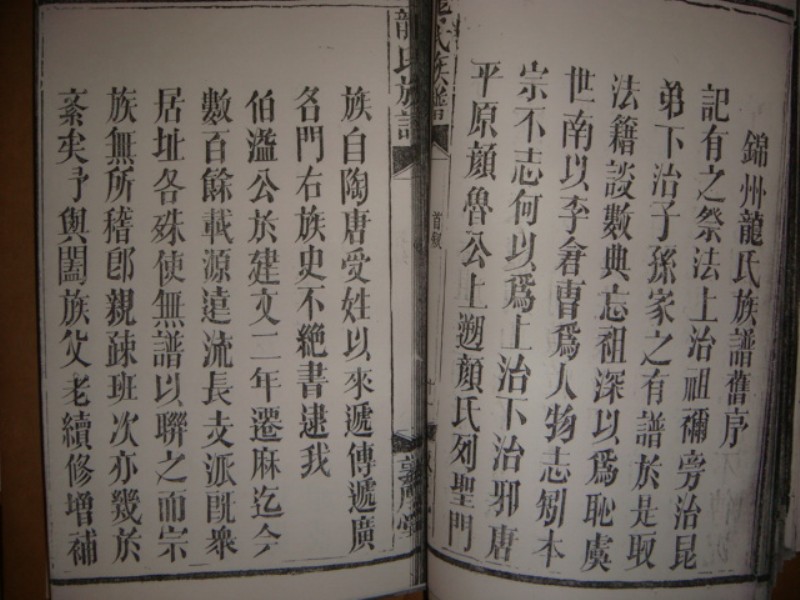 錦州龍氏族譜舊序
記有之祭法上治祖禰旁治昆
弟下治子孫家之有譜於是取
法籍談數典忘祖深以爲恥虞
世南以李倉曹爲人物志矧本
宗不志何以爲上治下治邪唐
平原顏魯公上遡顏氏列聖門
氏族譜
首
龍氏族譜
堂
族自陶唐受姓以來遞傳遞廣
各門右族史不絶書逮我
伯溢公於建文二年遷麻迄今
數百餘載源遠流長支派旣衆
居址各殊使無譜以聯之而宗
族無所稽卽親疎班次亦幾於
紊矣予與闔族父老續修增補